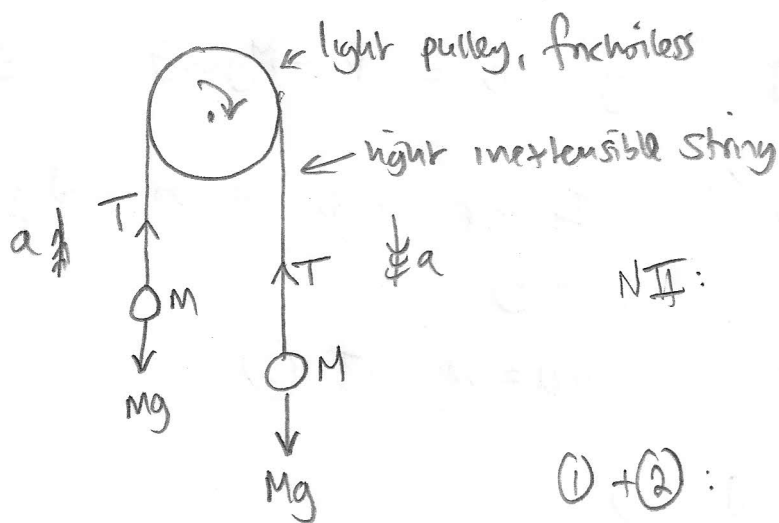 light pulley, frictionless
light inextensible string
T
a
T
a
NII:
M
M
Mg
Mg
① + ② :